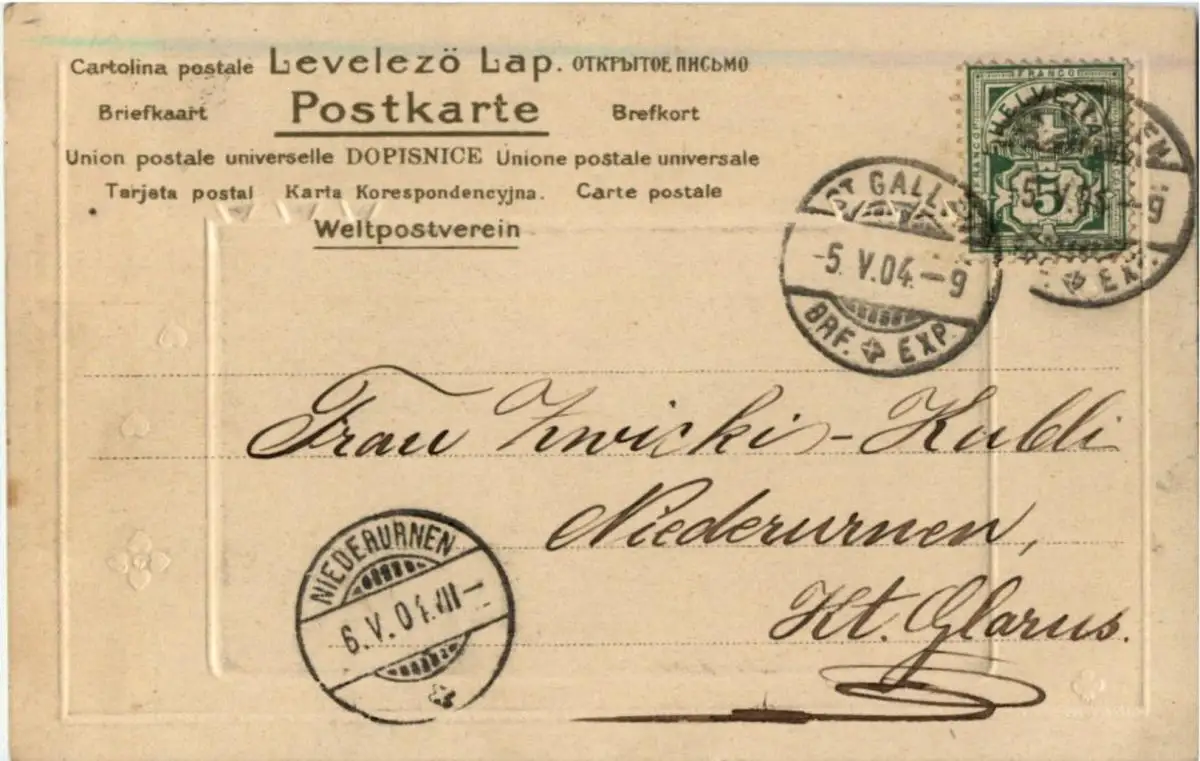 Cartolina postale Levelezö Lap. ОТКРЫТОЕ ПИСЬМО
Briefkaart Postkarte Brefkort
Union postale universelle DOPISNICE Unione postale universale
Tarjeta postal Karta Korespondencyjna. Carte postale
Weltpostverein
FRANCO
HELVETIA
FRANCO
5
ST GALLEN
-5.V.04.-9
BRF. EXP.
-5.V.04.-9
EXP.
Frau Zwicki-Kubli
Niederurnen,
Kt. Glarus.
NIEDERURNEN
6.V.04.VII-